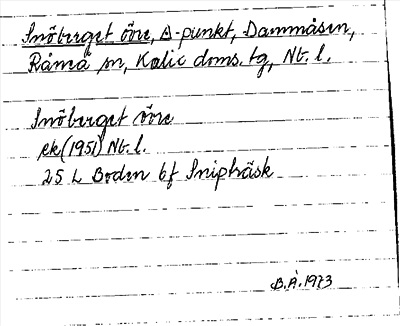 Snöberget övre, Δ-punkt, Dammåsen,
Råneå sn, Kalix doms. tg, Nb. l.
Snöberget övre
ek (1951) Nb. l.
25 L Boden 6f Sniptäsk
B.Å. 1973